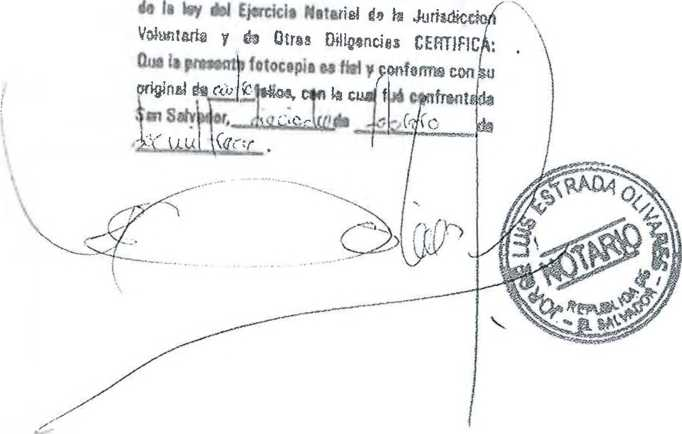 de la ley del Ejercicio Notarial de la Jurisdiccion
Voluntaria y de Otras Diligencias CERTIFICA:
Que la presente fotocopia es fiel y conforme con su
original de folios, con la cual fué confrontada
San Salvador, de de
de mil
JORGE LUIS ESTRADA OLIVARES
NOTARIO
REPUBLICA DE
EL SALVADOR